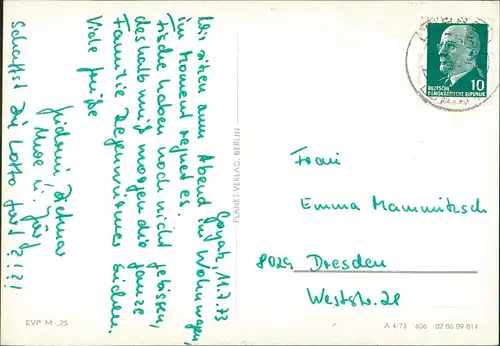 Goyatz, 11.7.73
Wir sitzen am Abend im Wohnwagen,
im Moment regnet es.
Fische haben noch nicht gebissen,
deshalb muß morgen die ganze
Familie Regenwürmer suchen.
Viele Grüße
Dietmar
Schaffst Du Lotto fort?!?!
EVP M -,25
PLANET-VERLAG, BERLIN
DEUTSCHE
DEMOKRATISCHE REPUBLIK
10
Frau
Emma Mammitzsch
8029 Dresden
Weststr. 28
A 4/73 606 02 06 09 014